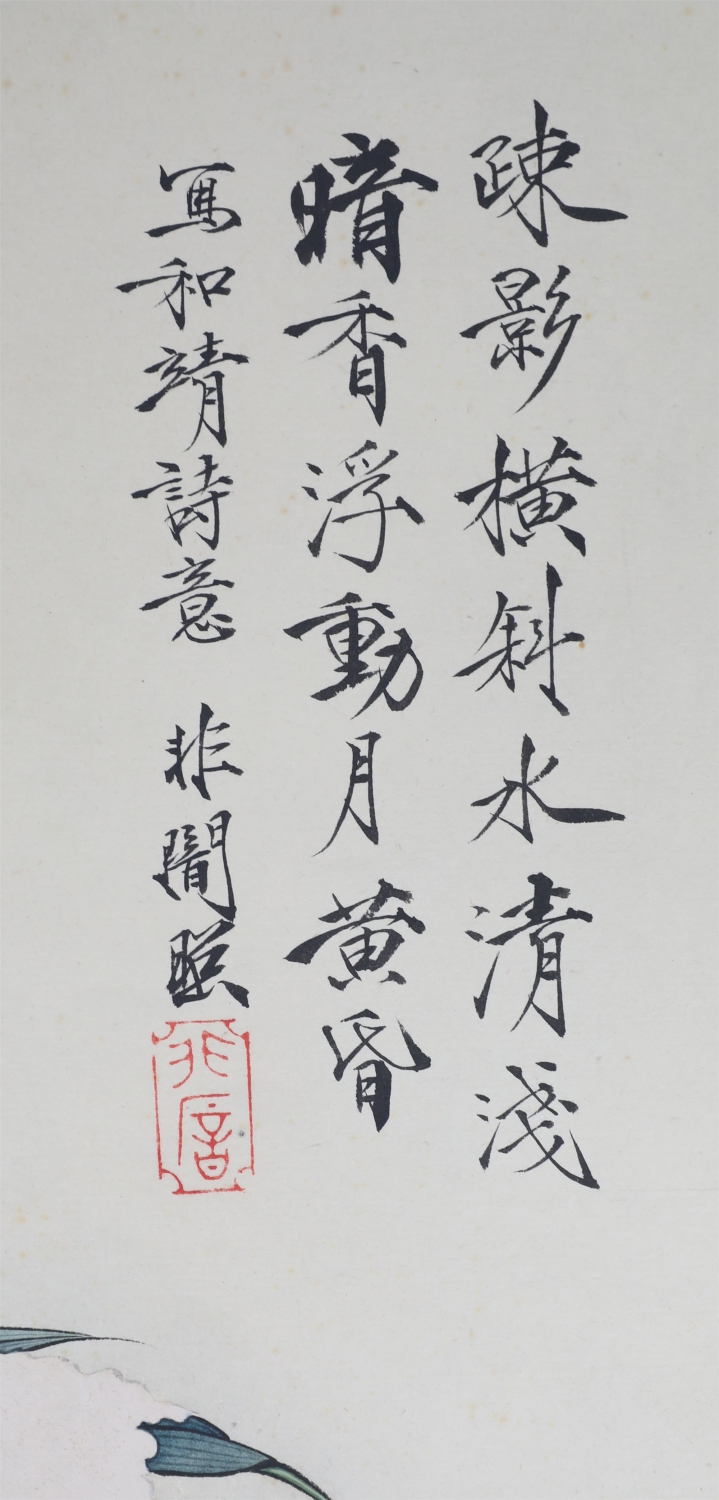 疎影橫斜水清淺
暗香浮動月黄昏
寫和靖詩意 非闇
非闇